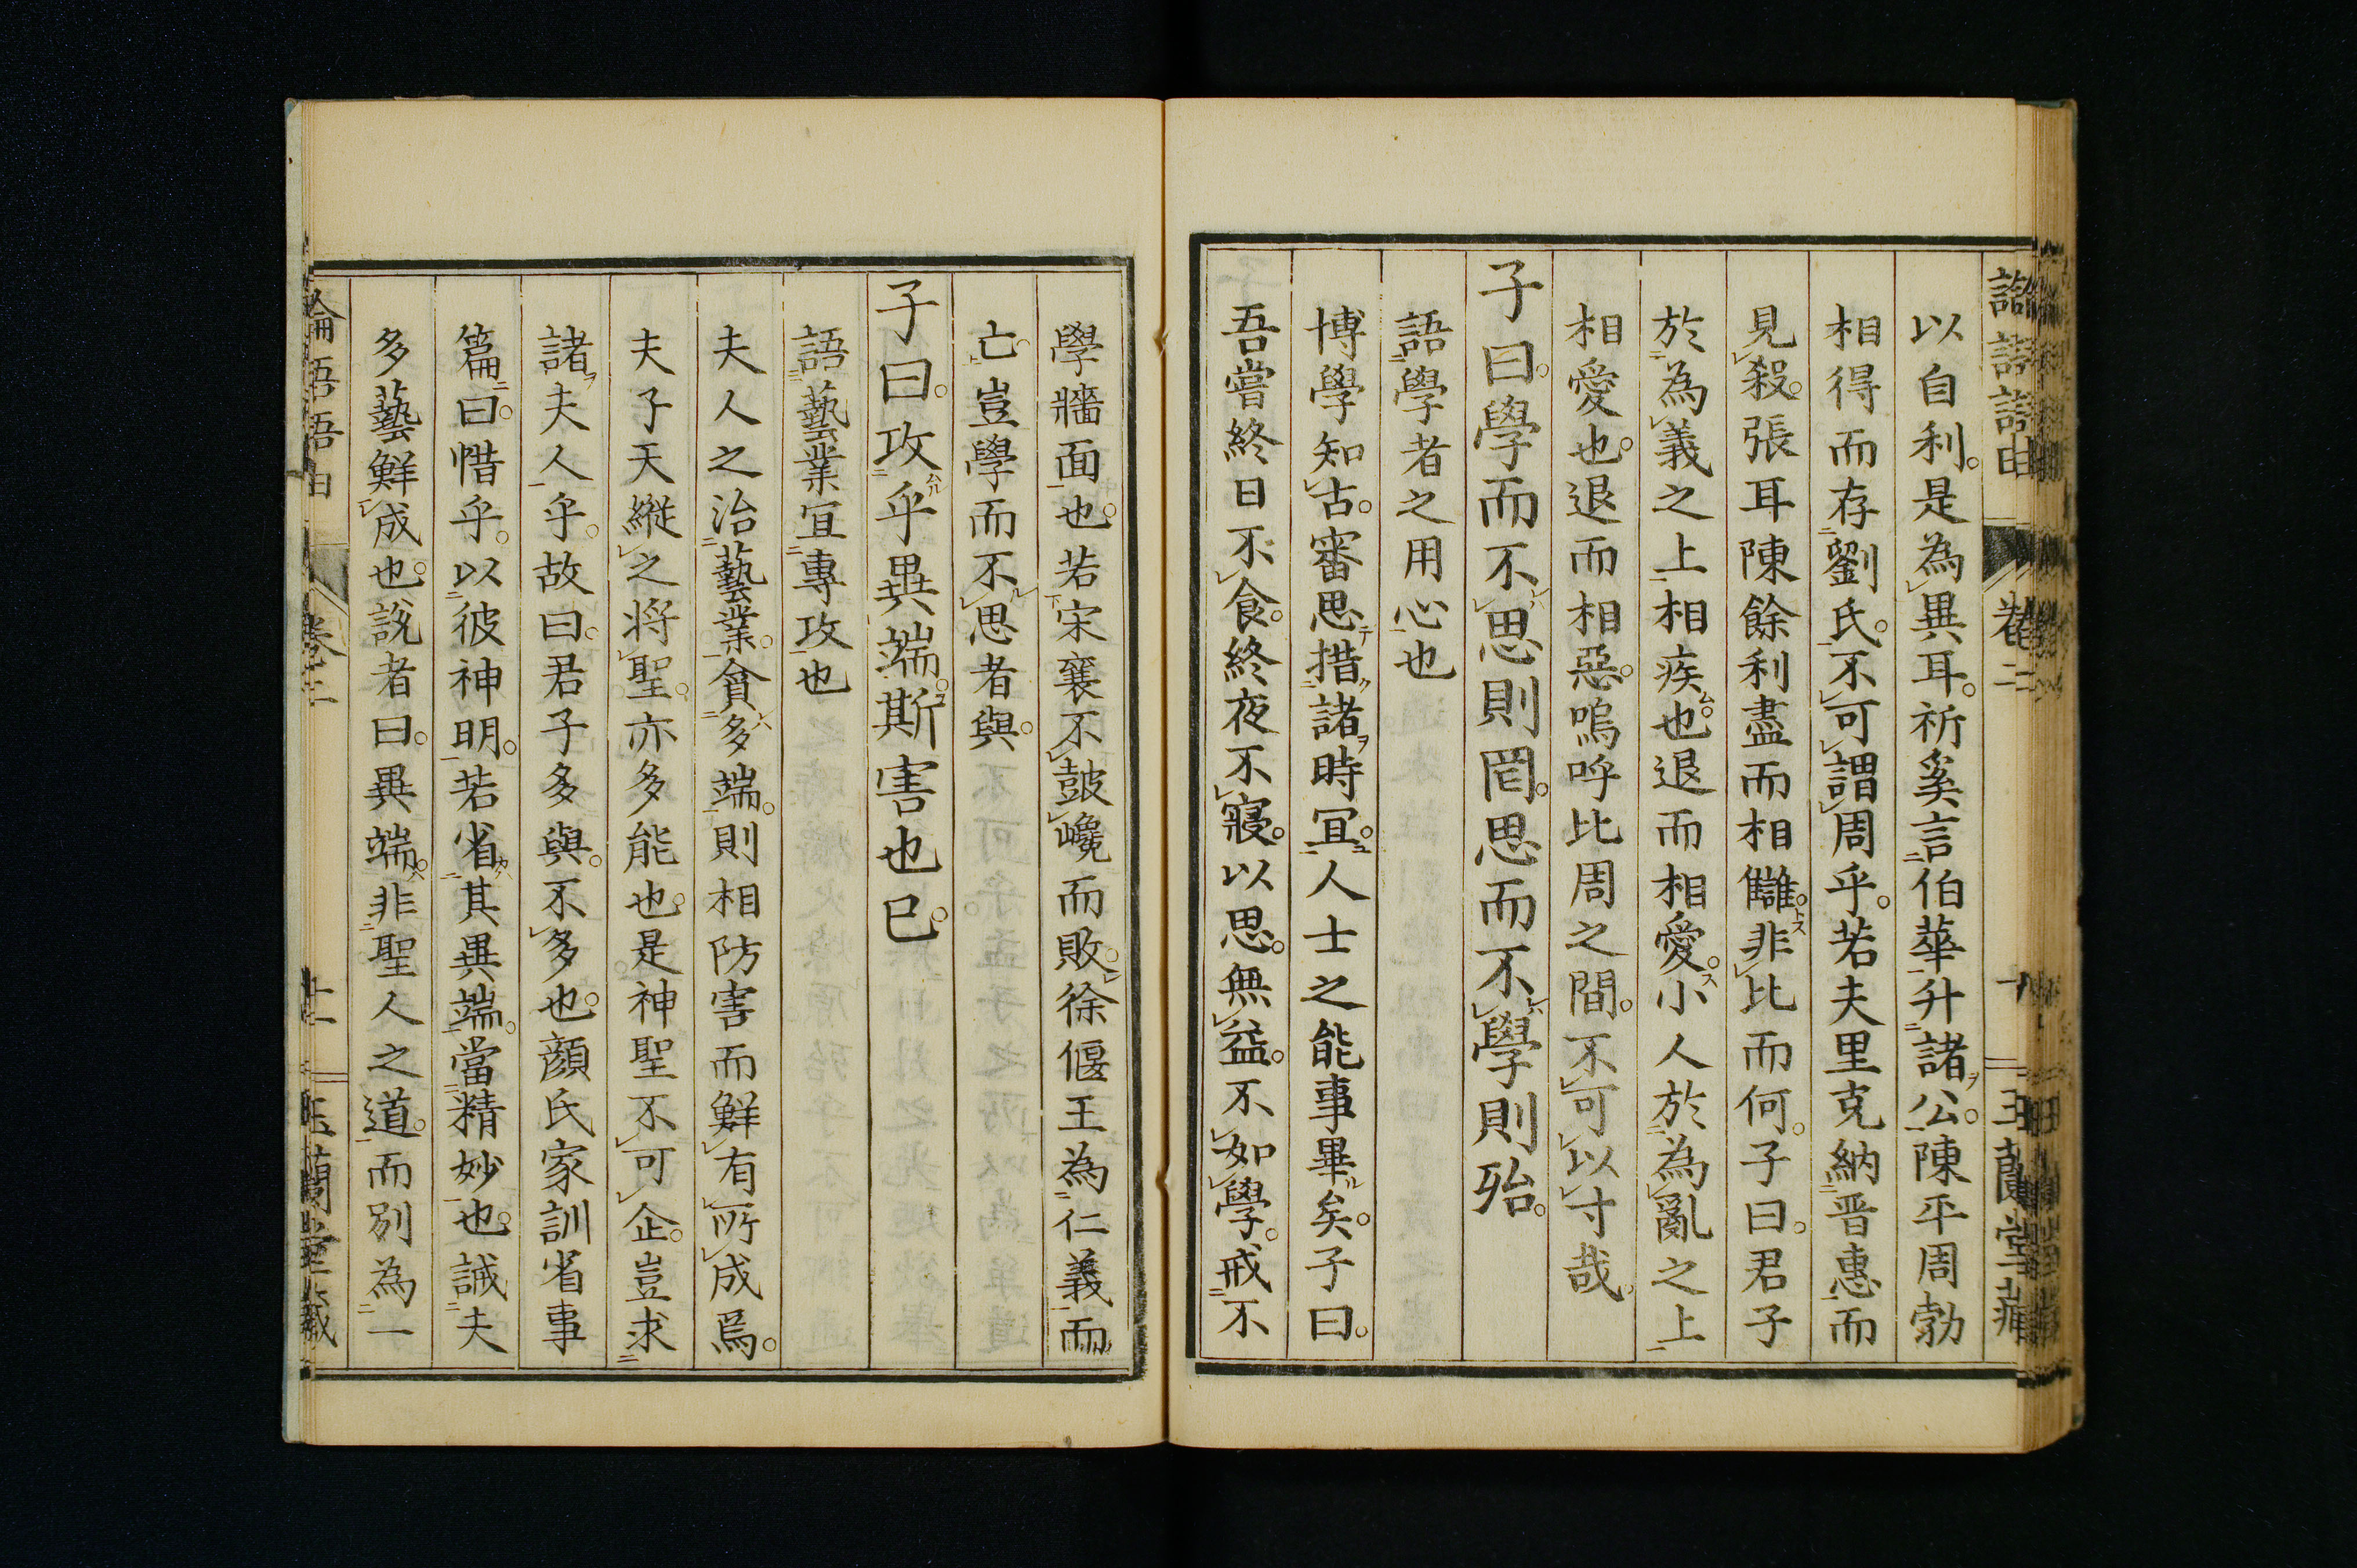 論語語由 卷二 十 玉蘭堂藏
以自利。是為異耳。祈奚言伯華升諸公。陳平周勃
相得而存劉氏。不可謂周乎。若夫里克納晋惠而
見殺。張耳陳餘利盡而相讎。非比而何。子曰。君子
於為義之上相疾也。退而相愛。小人於為亂之上
相愛也。退而相惡。嗚呼比周之間。不可以寸哉。
子曰。學而不思則罔。思而不學則殆。
語學者之用心也
博學知古。審思措諸時宜。人士之能事畢矣。子曰。
吾嘗終日不食。終夜不寢。以思。無益。不如學。戒不
學牆面也。若宋襄不鼓巉而敗。徐偃王為仁義而
亡。豈學而不思者與。
子曰。攻乎異端。斯害也已。
語藝業宜專攻也
夫人之治藝業。貪多端。則相防害而鮮有所成焉。
夫子天縱之將聖。亦多能也。是神聖不可企。豈求
諸夫人乎。故曰。君子多與。不多也。顏氏家訓省事
篇曰。惜乎。以彼神明。若省其異端。當精妙也。誠夫
多藝鮮成也。說者曰。異端。非聖人之道。而別為一
論語語由 卷二 十一 玉蘭堂藏